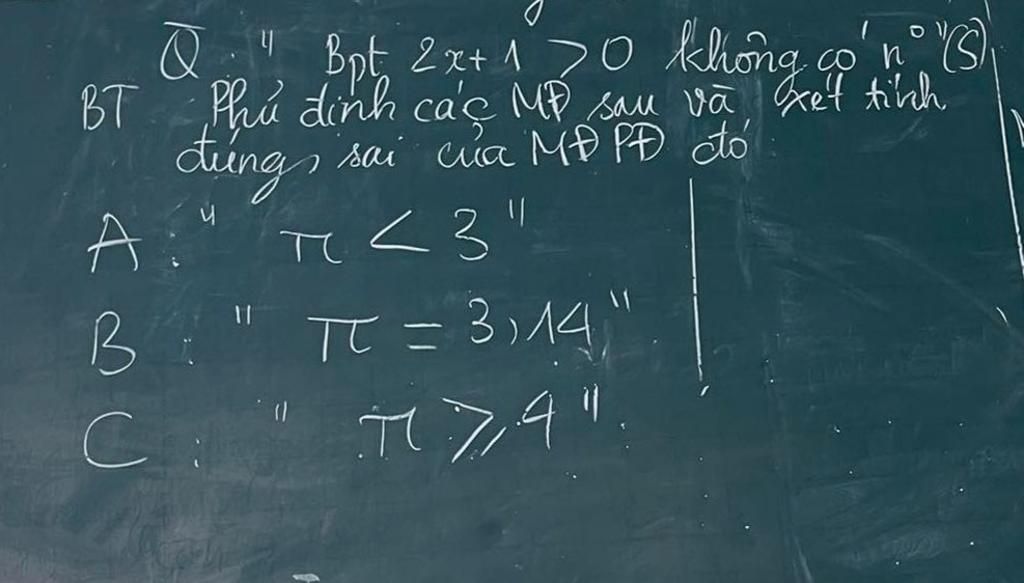 Q̅ : " Bpt 2x+1 >0 không có n⁰ "(S)
BT Phủ định các MĐ sau và xét tính
đúng, sai của MĐ PĐ đó
A : " π < 3 "
B : " π = 3,14 "
C : " π ⩾ 4 "